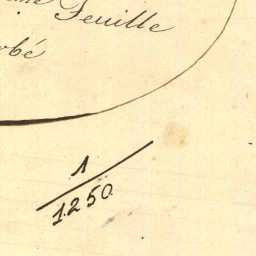 Feuille
bé
1/1250